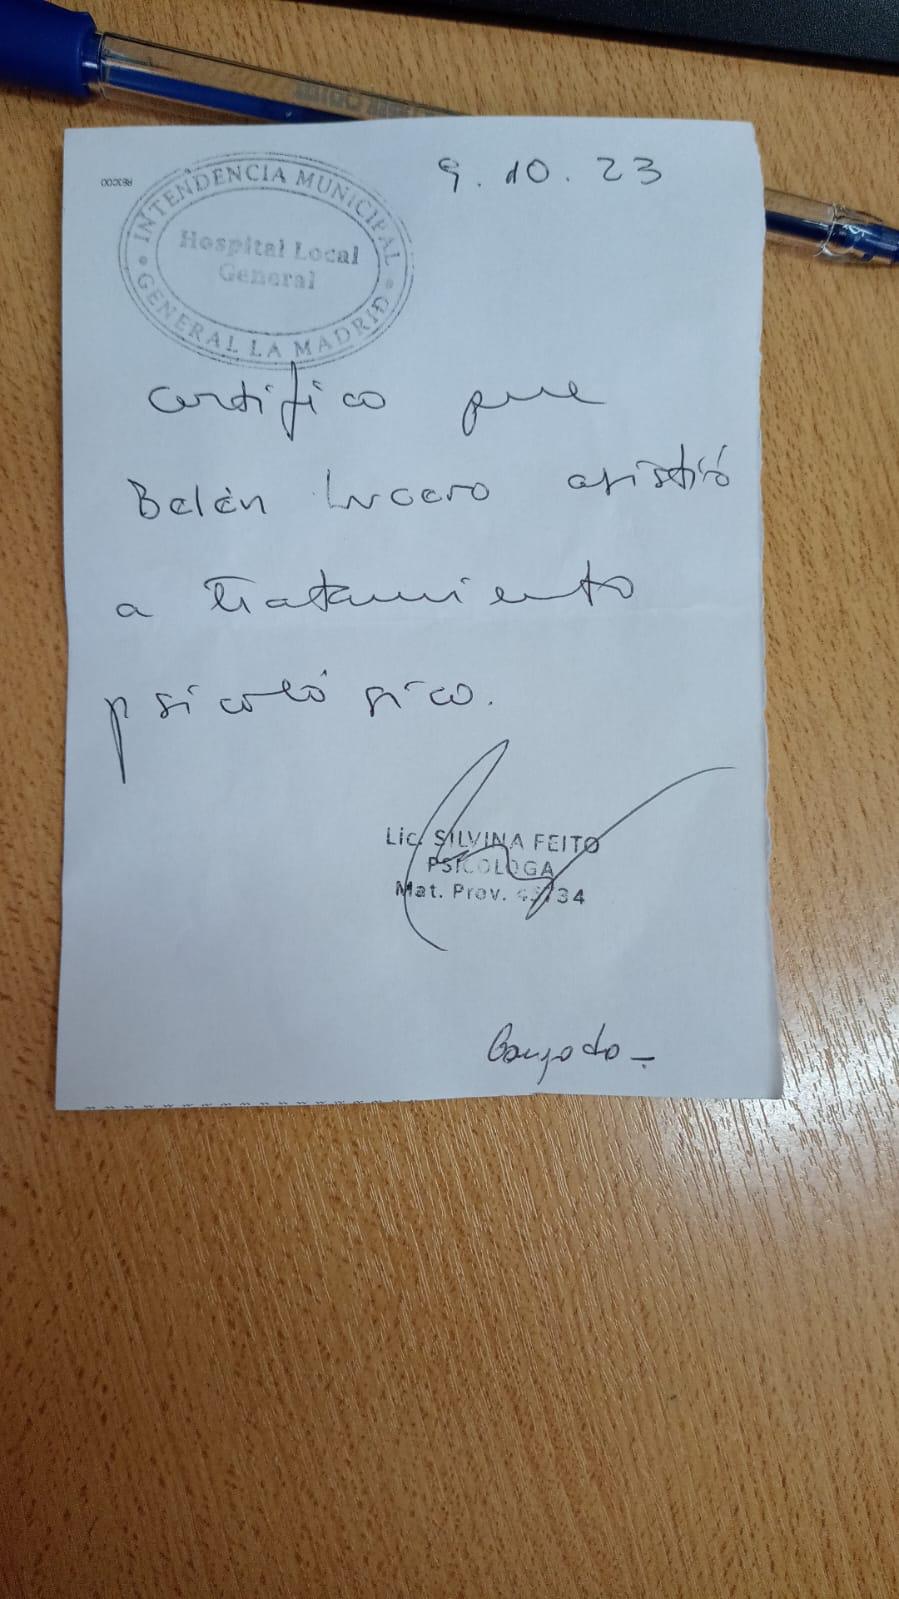 9.10.23
INTENDENCIA MUNICIPAL
Hospital Local
General
GENERAL LA MADRID
Certifico que
Belén Lucero asistió
a tratamiento
psicológico.
Lic. SILVINA FEITO
PSICOLOGA
Mat. Prov.